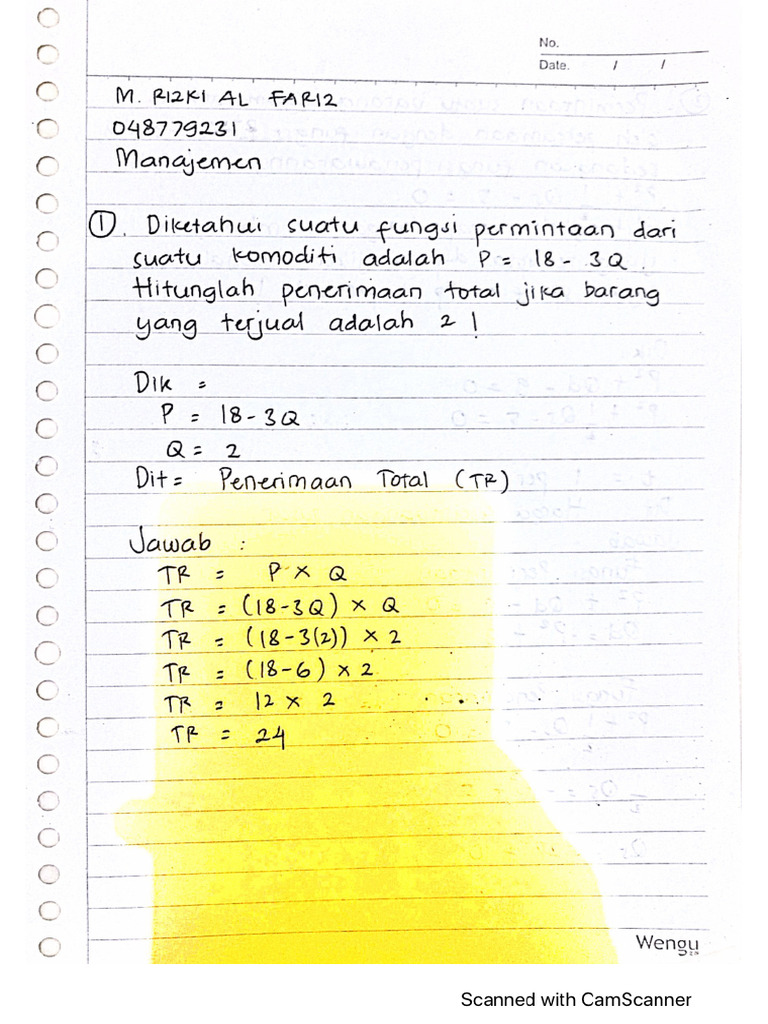 No.
Date. / /
M. RIZKI AL FARIZ
048779231
Manajemen
①. Diketahui suatu fungsi permintaan dari
suatu komoditi adalah P = 18 - 3Q.
Hitunglah penerimaan total jika barang
yang terjual adalah 2 !
Dik =
P = 18 - 3Q
Q = 2
Dit = Penerimaan Total (TR)
Jawab :
TR = P × Q
TR = (18-3Q) × Q
TR = (18-3(2)) × 2
TR = (18-6) × 2
TR = 12 × 2
TR = 24
Wengu
Scanned with CamScanner